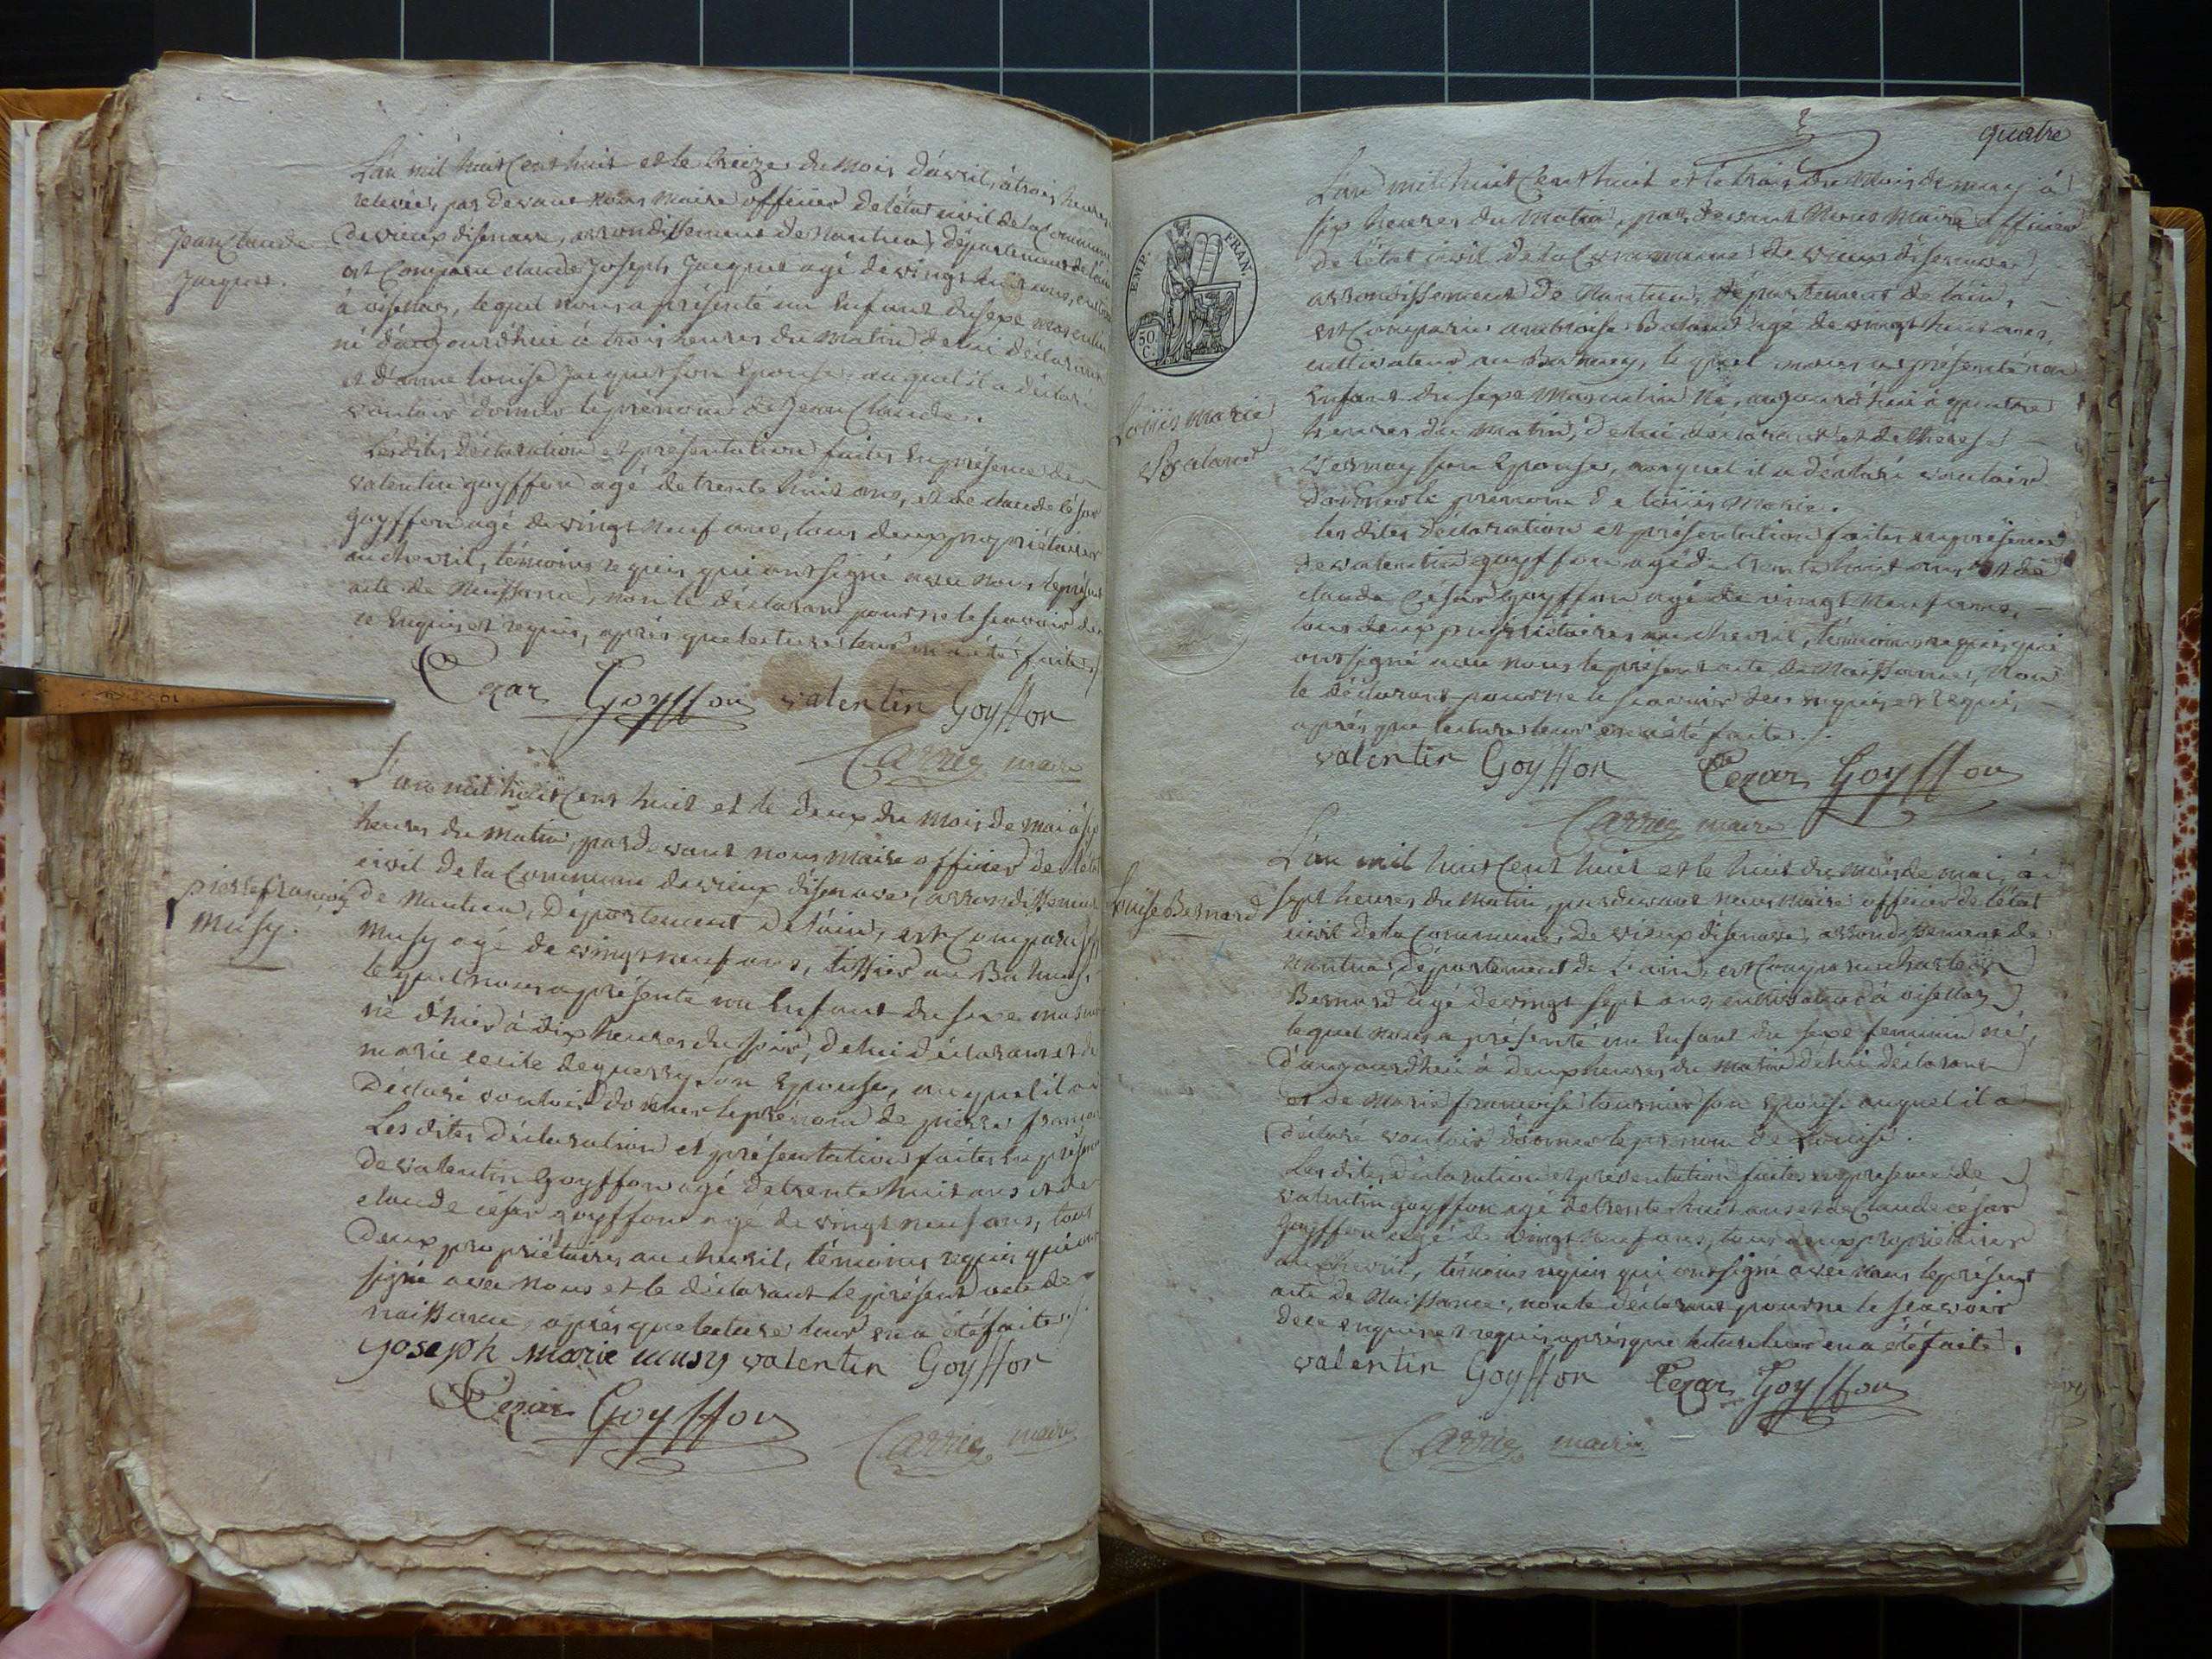 L'an mil huit Cent huit et le treize du mois d'avril, à trois heures
relevée, par devant nous maire officier de létat civil de la Commune
de vieux disenave, arrondissement de nantua, département de lain
Jean Claude
Jacquet.
est Comparu claude Joseph Jacquet agé de vingt huit ans,
à oisellaz, lequel nous a présenté un Enfant du sexe masculin
né d'aujourdhui à trois heures du matin de lui déclarant
et d'anne Louise Jacquet son Epouse, auquel il a déclaré
vouloir donner le prénom de Jean Claude.
Les dites déclaration et présentation faites En présence de
valentin goyffon agé de trente huit ans, et de claude césar
goyffon agé de vingt neuf ans, tous deux propriétaires
au chevril, témoins requis qui ont signé avec nous le présent
acte de Naissance, non le déclarant pour ne le scavoir de
ce Enquis et requis, après que lecture leur en a été faite
Cezar Goyffon valentin Goyffon
Carrier maire
L'an mil huit Cent huit et le deux du mois de mai à six
heures du matin, par devant nous maire officier de létat
civil de la Commune de vieux disenave, arrondissement
pierre françois
musy.
de Nantua, Département de lain, est Comparu
musy agé de vingt neuf ans, tissier au Balmay,
lequel nous a présenté un Enfant du sexe mascu
né d'hier à dix heures du soir, de lui déclarant et de
marie cecile deguerry son Epouse, auquel il a
Déclaré vouloir donner le prénom de pierre françois
Les dites déclaration et présentation faites En présence
de valentin goyffon agé de trente huit ans et de
claude césar goyffon agé de vingt neuf ans, tous
Deux propriétaires au chevril, témoins requis qui ont
signé avec nous et le déclarant le présent acte de
naissance, après que lecture leur en a été faite
joseph marie musy valentin Goyffon
Cezar Goyffon
Carrier maire
quatre
L'an mil huit Cent huit et le trois du Mois de may à
six heures du Matin, par devant Nous Maire officier
de l'état civil de la Commune de vieux disenave,
EMP. FRAN.
50 C.
arrondissement de Nantua, département de lain,
est Comparu ambroise Baland agé de vingt huit ans,
cultivateur au Balmay, le quel nous a présenté un
Enfant du sexe Masculin né, aujourdhui à quatre
Louis marie
Baland
heures du matin, de lui déclarant et de therese
Vernay son Epouse, auquel il a déclaré vouloir
donner le prenom de louis Marie.
les dites déclaration et présentation faites en présence
de valentin goyffon agé de trente huit ans, et de
claude César Goyffon agé de vingt neuf ans,
tous deux propriétaires au chevril, témoins requis qui
ont signé avec nous le présent acte de Naissance, Non
le déclarant pour ne le scavoir de ce enquis et requis,
après que lecture leur en a été faite.
valentin Goyffon Cezar Goyffon
Carrier maire
L'an mil huit Cent huit et le huit du mois de mai, à
Louise Bernard
sept heures du Matin, par devant nous maire officier de l'état
civil de la Commune, de vieux disenave, arrondissement de
Nantua, département de Lain, est Comparu
Bernard agé de vingt sept ans, cultivateur à oisellaz
lequel nous a présenté un Enfant du sexe feminin né,
d'aujourdhui à deux heures du matin de lui déclarant
et de Marie françoise tournier son Epouse auquel il a
déclaré vouloir donner le prenom de Louise.
Les dites déclaration et présentation faites en présence de
valentin goyffon agé de trente huit ans et de Claude césar
Goyffon agé de vingt neuf ans, tous deux propriétaires
au chevril, témoins requis qui ont signé avec nous le présent
acte de Naissance, non le déclarant pour ne le scavoir
de ce enquis et requis après que lecture leur en a été faite.
valentin Goyffon Cezar Goyffon
Carrier maire